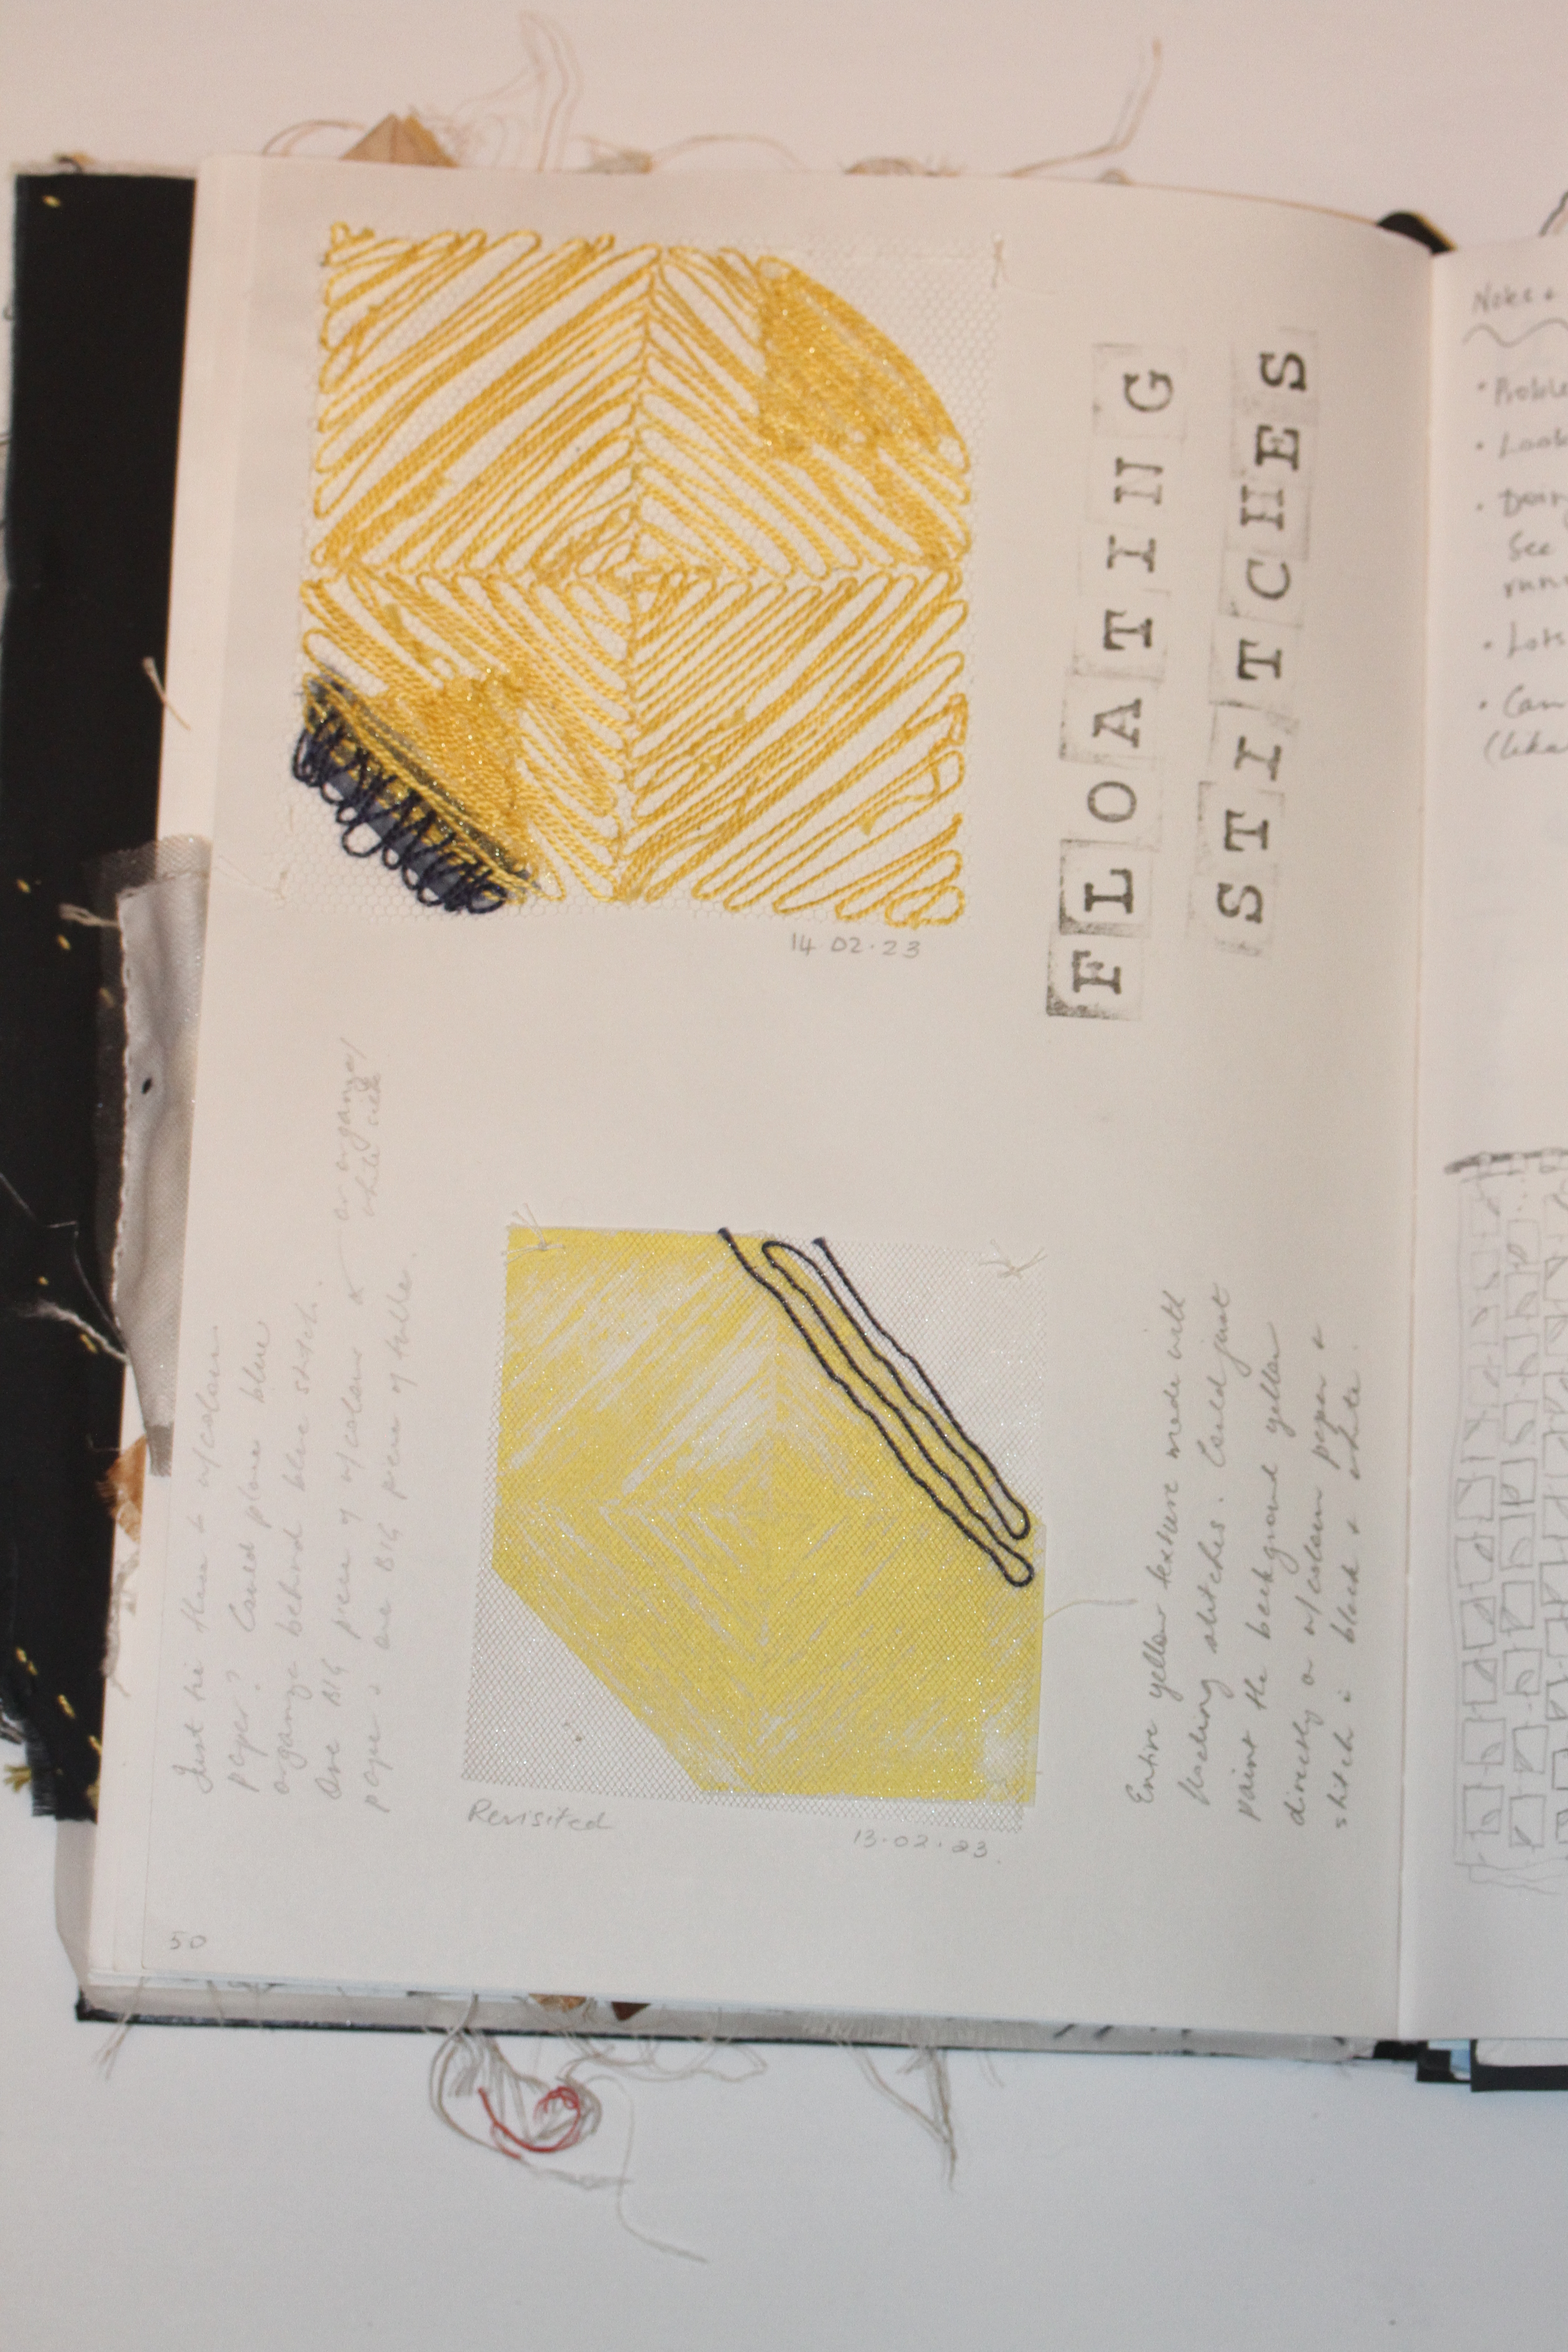 FLOATING
STITCHES
14 02.23
Just tie them to w/colour
paper? Could place blue
organza behind blue stitch.
One BIG piece of w/colour
paper & one BIG piece of tulle.
or organza/
white silk
Revisited
13.02.23.
Entire yellow texture made with
floating stitches. Could just
paint the background yellow
directly on w/colour paper &
stitch in black & white.
50
Notes +
See
Lots
(like